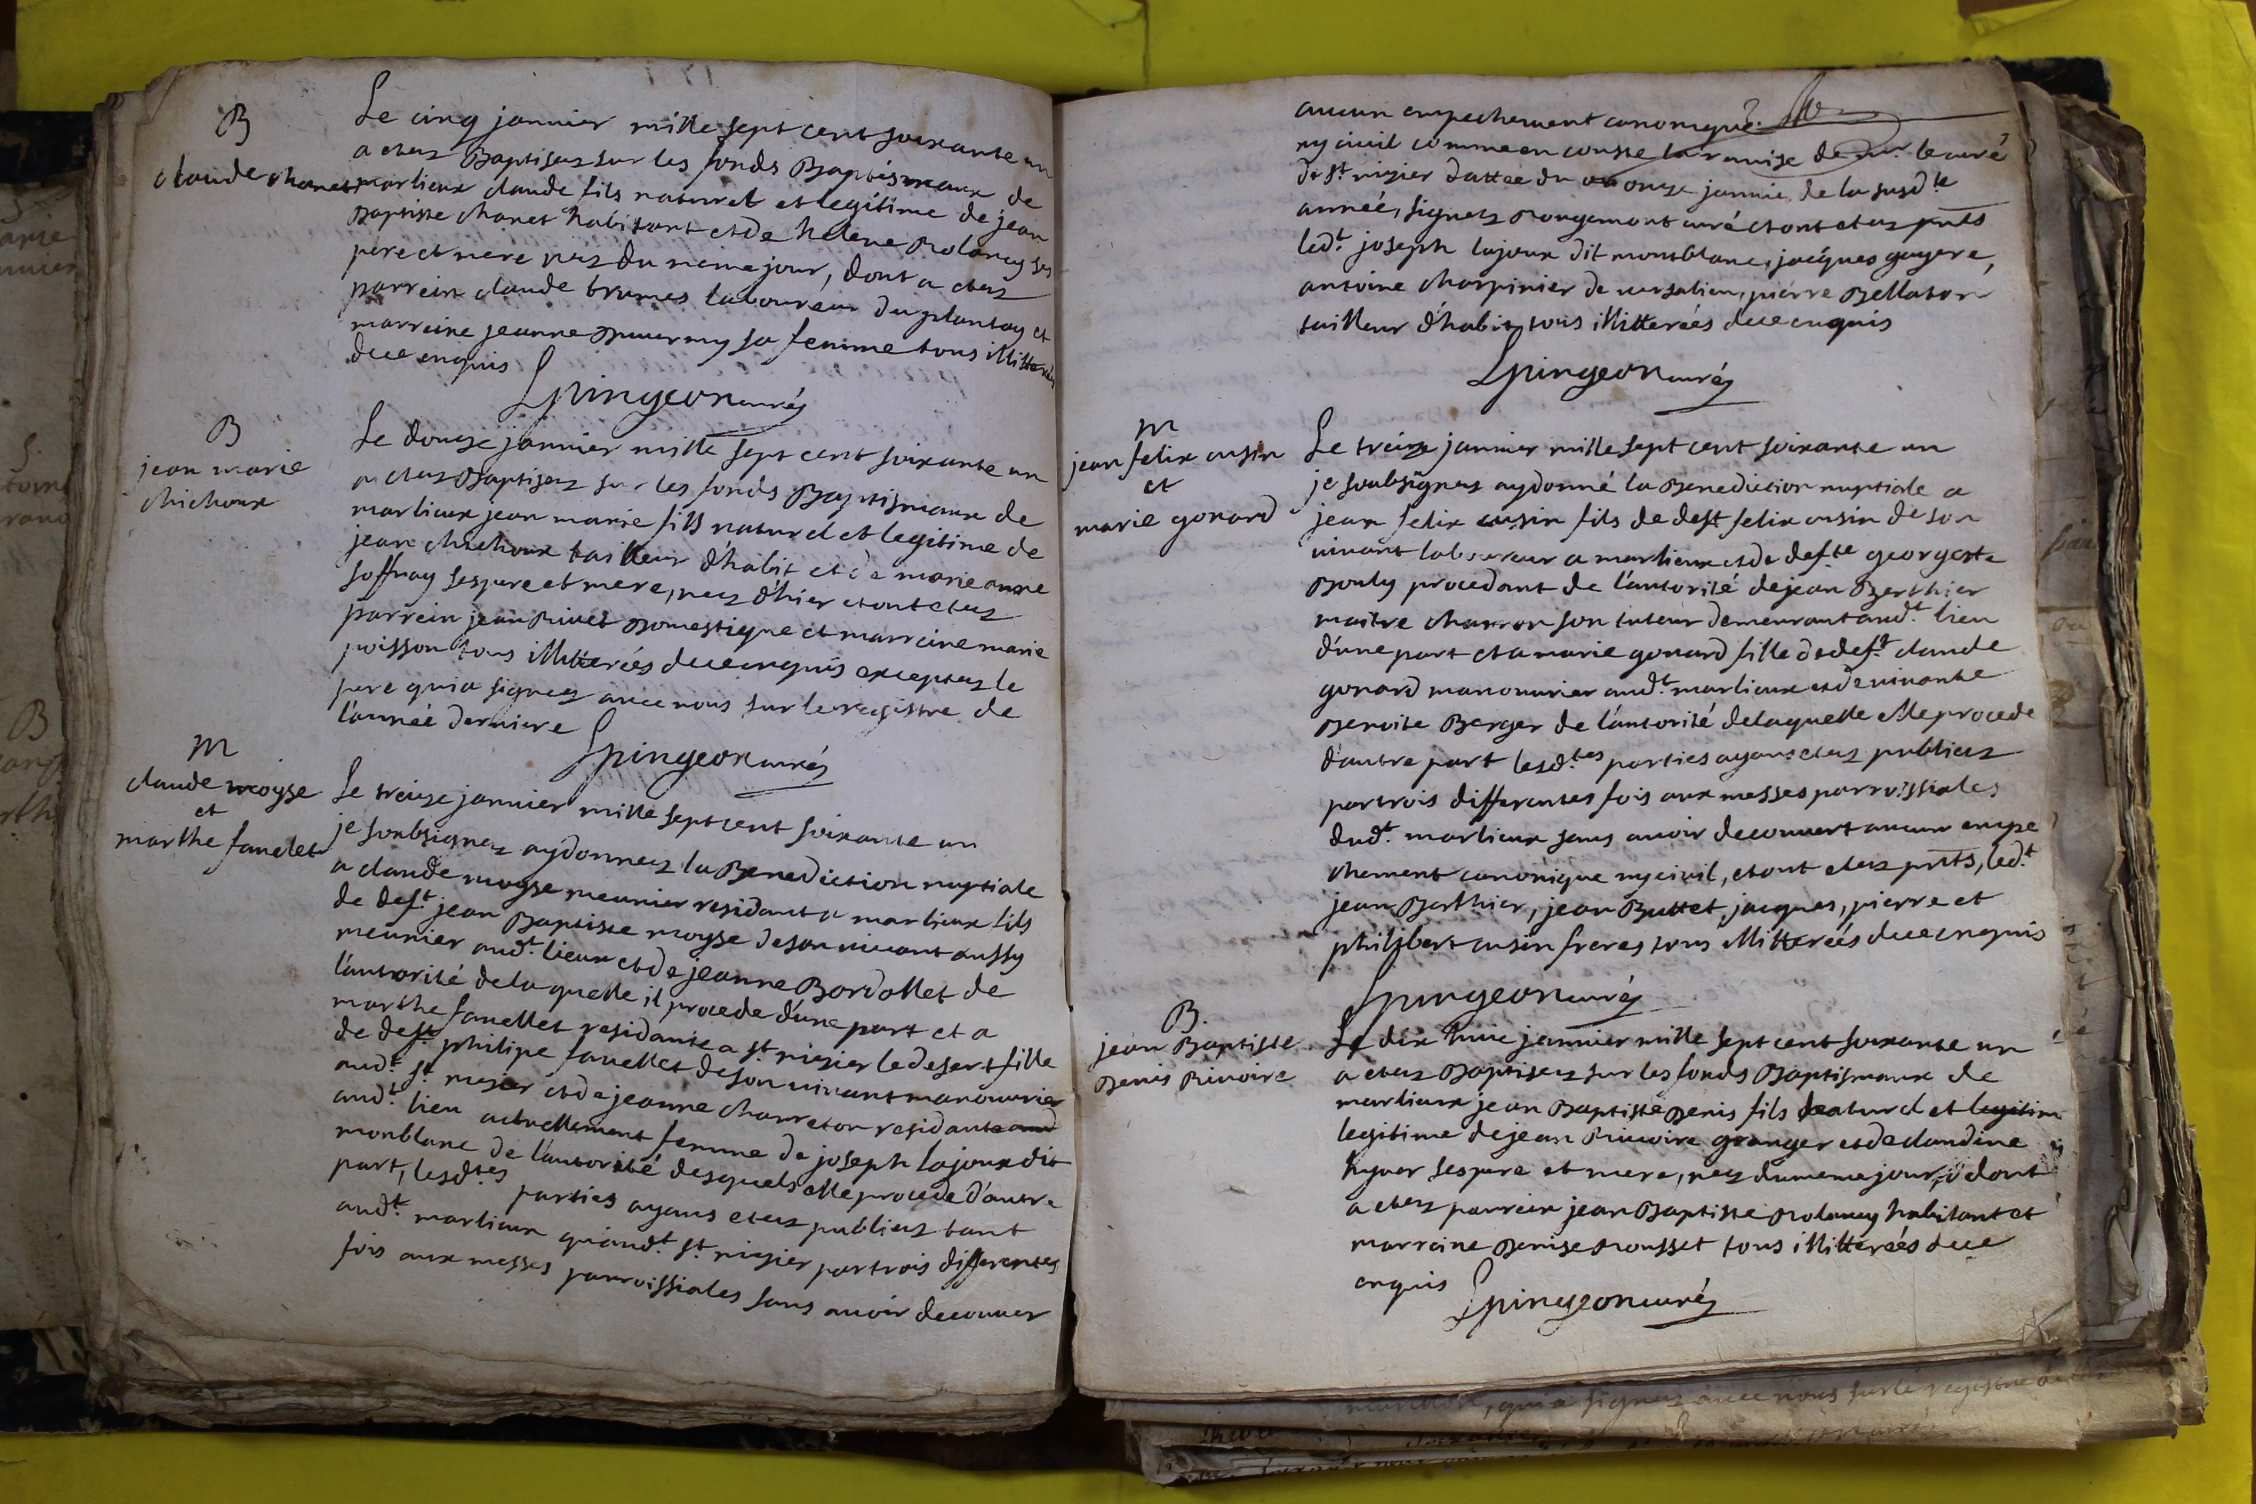 B
claude chanet
Le cinq janvier mille sept cent soixante un
a etez Baptisez sur les fonds Baptismaux de
marlieux claude fils naturel et legitime de jean
Baptiste chanet habitant et de helene Rolancy ses
pere et mere nez du meme jour, dont a etez
parrein claude brunes laboureur du plantay et
marreine jeanne sa femme tous illitterés
due enquis
Lpingeon curéz
B
jean marie
chichoux
Le douze janvier mille sept cent soixante un
a etez Baptisez sur les fonds Baptismaux de
marlieux jean marie fils naturel et legitime de
jean chichoux tailleur d'habit et de marie anne
joffray ses pere et mere, nez d'hier et ont etez
parrein jean Rivet Domestique et marreine marie
poisson tous illitterées due enquis exceptez le
pere qui a signez avec nous sur le registre de
l'année derniere
Lpingeon curéz
m
claude moyse
et
marthe favelet
Le treize janvier mille sept cent soixante un
je soubsignez ay donnez la Benediction nuptiale
a claude moyse meunier residant a marlieux fils
de deft. jean Baptiste moyse de son vivant aussy
meunier audt. lieux et de jeanne Bordollet de
l'autorité de laquelle il procede d'une part et a
marthe favellet residante a st. nizier le desert fille
de deft. philipe favellet de son vivant manouvrier
audt. st. nizier et de jeanne charreton residante aud
audt. lieu actuellement femme de joseph lajoux dit
monblanc de l'autorité desquels elle procede d'autre
part, lesd.tes parties ayans etez publiez tant
audt. marlieux qu'audt. st. nizier par trois differentes
fois aux messes parroissiales sans avoir decouver
aucun empechement canonique
ny civil comme en conste la remise de mr. le curé
de st. nizier dattee du onze janvie de la susd.te
année, signez Rougemont curé et ont etez pnts
ledt. joseph lajoux dit montblanc, jacques guyere,
antoine charpinier de versalieu, pierre Bellaton
tailleur d'habit, tous illitterées due enquis
Lpingeon curéz
m
jean felix cusin
et
marie gonard
Le treize janvier mille sept cent soixante un
je soubsignez ay donné la Benediction nuptiale a
jean felix cusin fils de deft felix cusin de son
vivant laboureur a marlieux et de defte georgette
Bouly procedant de l'autorité de jean Berthier
maitre charron son tuteur demeurant audt. lieu
d'une part et a marie gonard fille de deft. claude
gonard manouvrier audt. marlieux et de vivante
Benoite Berger de l'autorité de laquelle elle procede
d'autre part lesd.tes parties ayans etez publiez
par trois differentes fois aux messes parroissiales
dudt. marlieux sans avoir decouvert aucun empe
chement canonique ny civil, et ont etez pnts, ledt.
jean Berthier, jean Buttet, jacques, pierre et
philibert cusin freres tous illitterées due enquis
Lpingeon curéz
B.
jean Baptiste
Denis Rivoire
Le dix huit janvier mille sept cent soixante un
a etez Baptisez sur les fonds Baptismaux de
marlieux jean Baptiste Denis fils naturel et legitim
legitime de jean Rivoire granger et de claudine
hyver ses pere et mere, nez du meme jour, dont
a etez parrein jean Baptiste Rolancy habitant et
marreine Denise Rousset tous illitterées due
enquis
Lpingeon curéz